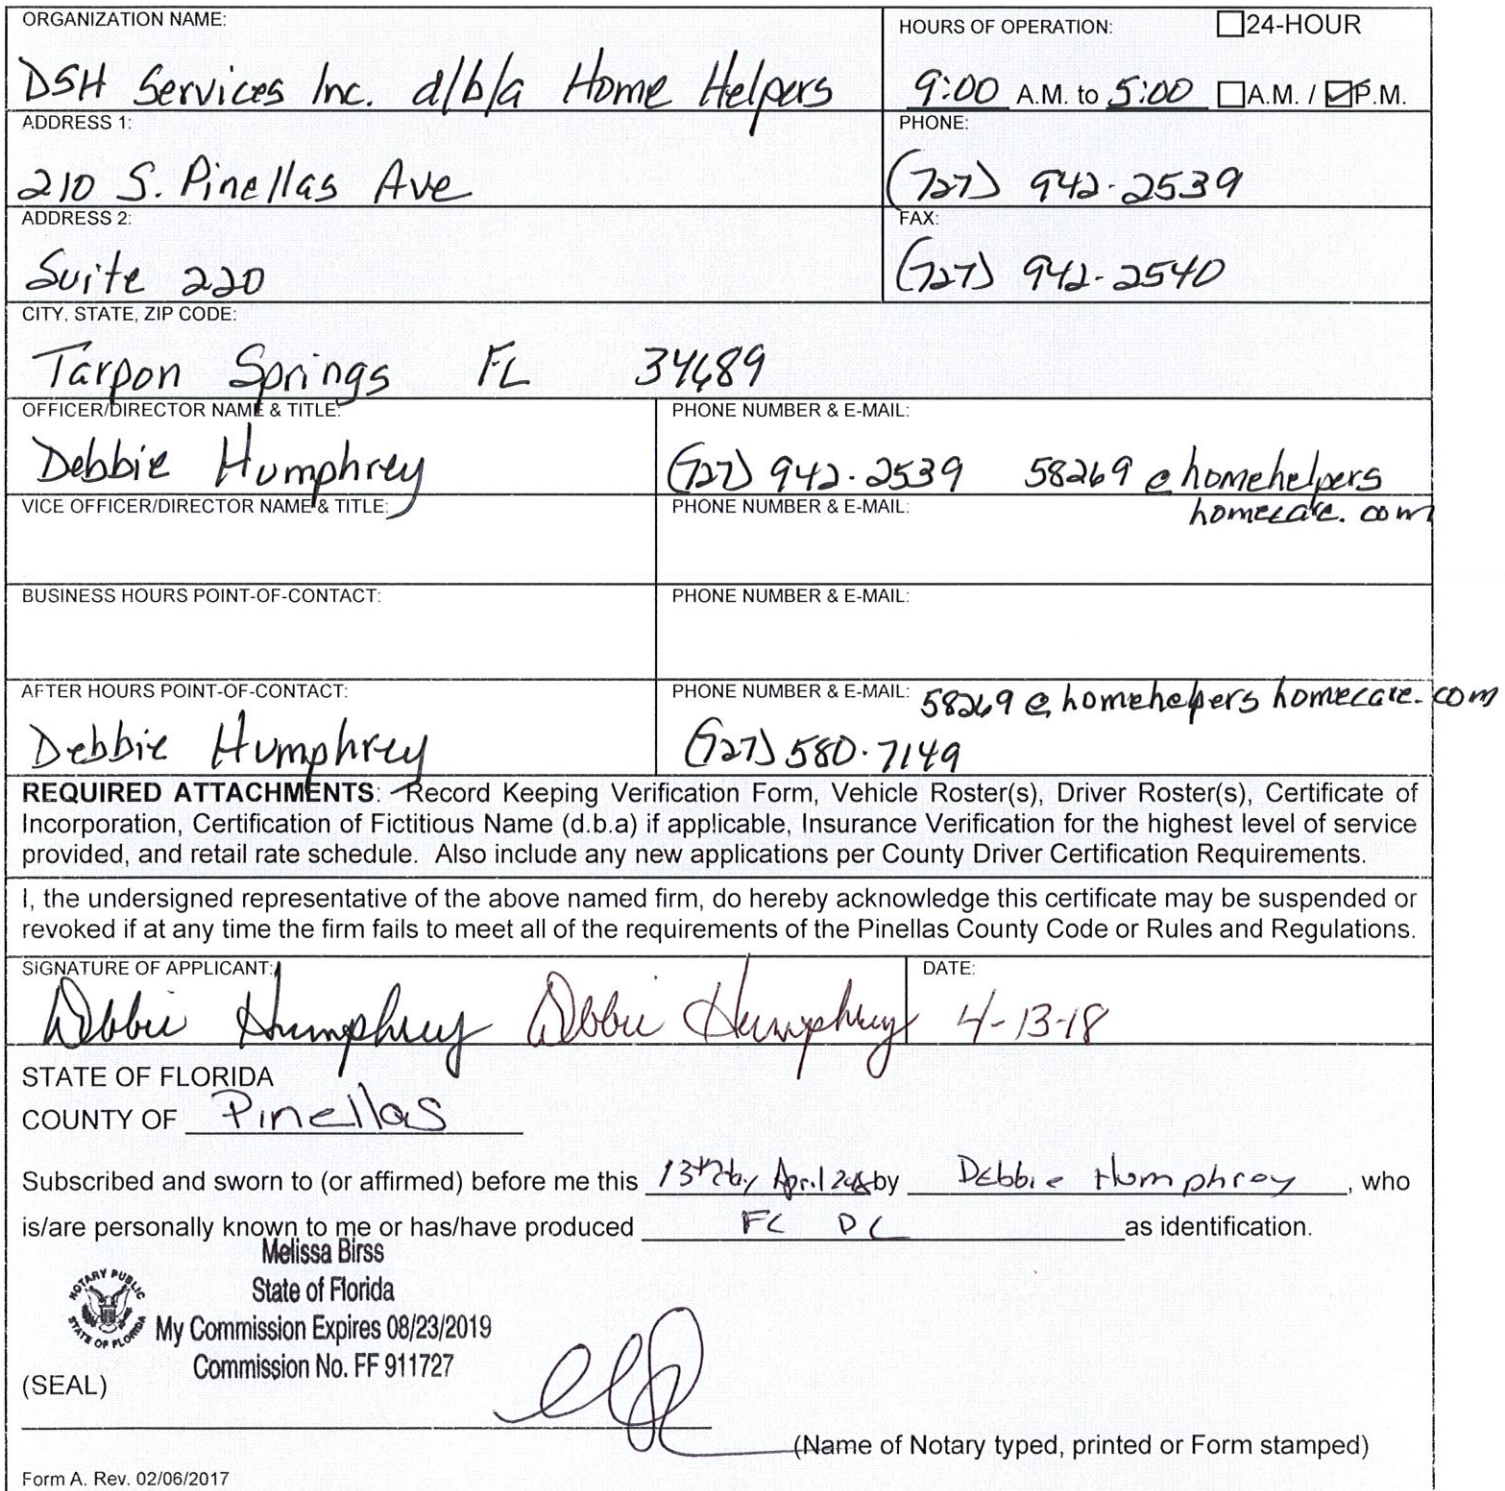 ORGANIZATION NAME:
DSH Services Inc. d/b/a Home Helpers
HOURS OF OPERATION: 24-HOUR
9:00 A.M. to 5:00 A.M. / P.M.
ADDRESS 1:
210 S. Pinellas Ave
PHONE:
(727) 942-2539
ADDRESS 2:
Suite 220
FAX:
(727) 942-2540
CITY, STATE, ZIP CODE:
Tarpon Springs FL 34689
OFFICER/DIRECTOR NAME & TITLE:
Debbie Humphrey
PHONE NUMBER & E-MAIL:
(727) 942-2539 58269@homehelpers
homecare.com
VICE OFFICER/DIRECTOR NAME & TITLE:
PHONE NUMBER & E-MAIL:
BUSINESS HOURS POINT-OF-CONTACT:
PHONE NUMBER & E-MAIL:
AFTER HOURS POINT-OF-CONTACT:
Debbie Humphrey
PHONE NUMBER & E-MAIL: 58269@homehelpershomecare.com
(727) 580-7149
REQUIRED ATTACHMENTS: Record Keeping Verification Form, Vehicle Roster(s), Driver Roster(s), Certificate of
Incorporation, Certification of Fictitious Name (d.b.a) if applicable, Insurance Verification for the highest level of service
provided, and retail rate schedule. Also include any new applications per County Driver Certification Requirements.
I, the undersigned representative of the above named firm, do hereby acknowledge this certificate may be suspended or
revoked if at any time the firm fails to meet all of the requirements of the Pinellas County Code or Rules and Regulations.
SIGNATURE OF APPLICANT:
Debbie Humphrey Debbie Humphrey
DATE:
4-13-18
STATE OF FLORIDA
COUNTY OF Pinellas
Subscribed and sworn to (or affirmed) before me this 13th day April 2018 by Debbie Humphrey, who
is/are personally known to me or has/have produced FL DL as identification.
Melissa Birss
State of Florida
My Commission Expires 08/23/2019
Commission No. FF 911727
NOTARY PUBLIC
STATE OF FLORIDA
(SEAL)
(Name of Notary typed, printed or Form stamped)
Form A. Rev. 02/06/2017